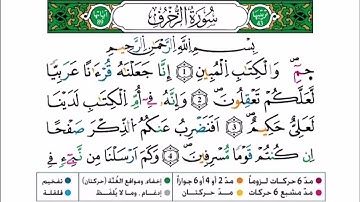 سُورَةُ الزُّخْرُفِ
بِسْمِ اللَّهِ الرَّحْمَٰنِ الرَّحِيمِ
حمٓ ۝١ وَالْكِتَابِ الْمُبِينِ ۝٢ إِنَّا جَعَلْنَاهُ قُرْءَانًا عَرَبِيًّا
لَّعَلَّكُمْ تَعْقِلُونَ ۝٣ وَإِنَّهُ فِىٓ أُمِّ الْكِتَابِ لَدَيْنَا
لَعَلِىٌّ حَكِيمٌ ۝٤ أَفَنَضْرِبُ عَنكُمُ الذِّكْرَ صَفْحًا
أَن كُنتُمْ قَوْمًا مُّسْرِفِينَ ۝٥ وَكَمْ أَرْسَلْنَا مِن نَّبِىٍّ فِى
مدّ 6 حركات لزوماً مدّ 2 أو 4 أو 6 جوازاً إخفاء ومواقع الغُنَّة (حركتان) تفخيم
مدّ مشبع 6 حركات مدّ حركتان إدغام، وما لا يُلفظ قلقلة